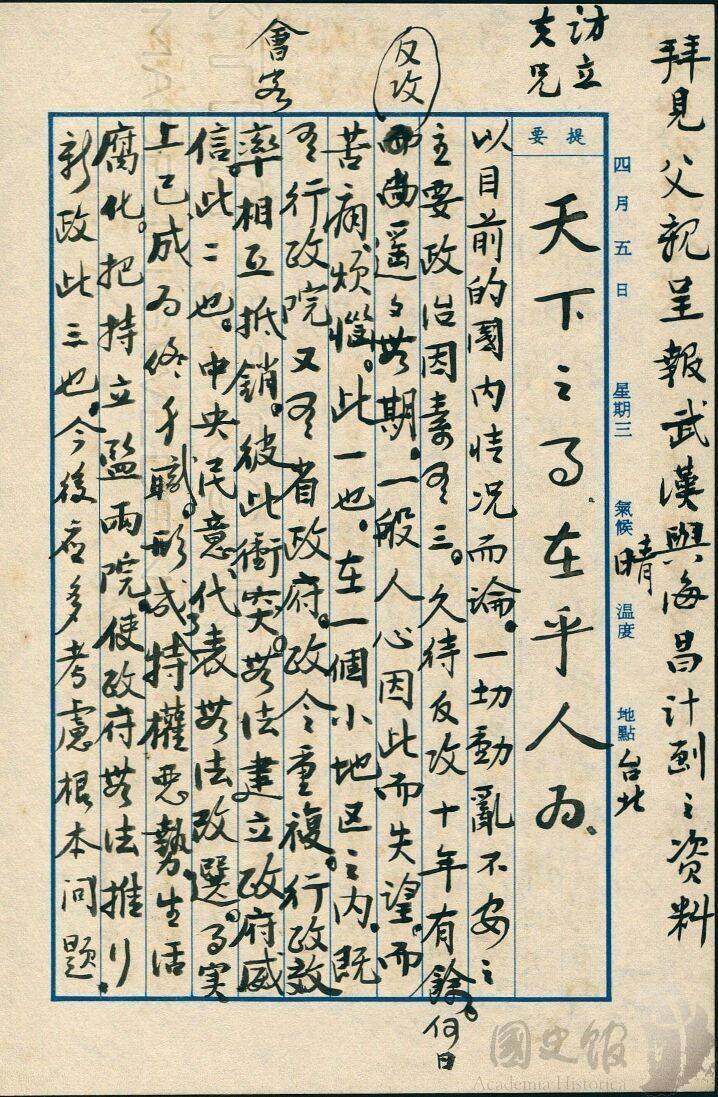 拜見父親呈報武漢與海昌計劃之資料
訪立
夫兄
反攻
會客
四月五日 星期三 氣候 晴 溫度 地點 台北
提要
天下之事、在乎人為、
以目前的國內情況而論。一切動亂不安之
主要政治因素有三。久待反攻十年有餘。何日
尚遙遙無期。一般人心因此而失望。而
苦痛煩惱。此一也。在一個小地区之內。既
有行政院又有省政府。政令重複。行政效
率相互抵銷。彼此衝突。無法建立政府威
信。此二也。中央民意代表無法改選。事实
上已成為終身職。形成特權惡勢。生活
腐化。把持立監兩院使政府無法推行
新政此三也。今後应多考慮根本问题。
國史館
Academia Historica